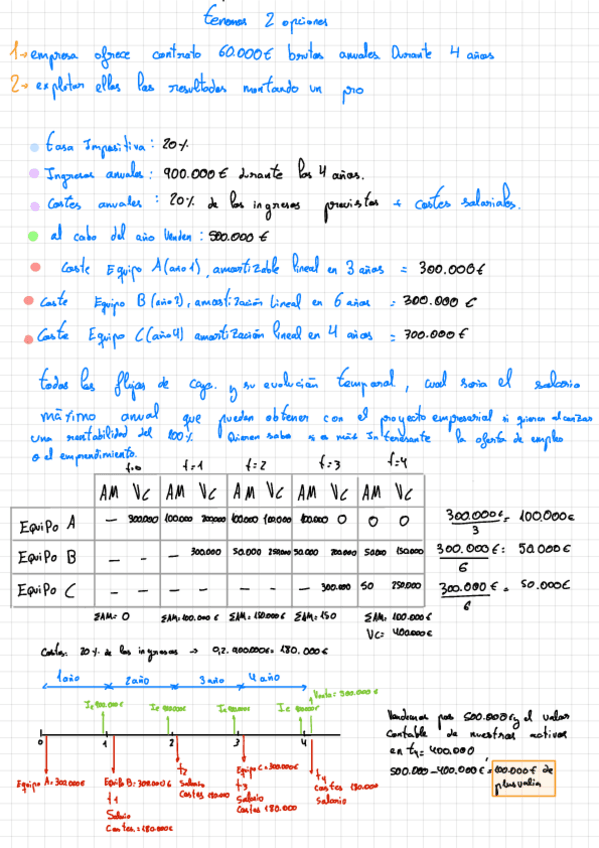 tenemos 2 opciones
1→ empresa ofrece contrato 60.000€ brutos anuales Durante 4 años
2→ explotar ellos los resultados montando un pro
tasa Impositiva: 20%
Ingresos anuales: 900.000€ durante los 4 años.
Costes anuales: 20% de los ingresos previstos + costes salariales.
al cabo del año venden: 500.000€
Coste Equipo A (año 1), amortizable lineal en 3 años = 300.000€
Coste Equipo B (año 2), amortización Lineal en 6 años = 300.000€
Coste Equipo C (año 4) amortización lineal en 4 años = 300.000€
todos los flujos de caja y su evolución temporal, cual seria el salario
máximo anual que pueden obtener con el proyecto empresarial si quieren alcanzar
una rentabilidad del 100%. Quieren saber si es más Interesante la oferta de empleo
o el emprendimiento.
t=0 t=1 t=2 t=3 t=4
AM VC AM VC AM VC AM VC AM VC
Equipo A — 300.000 100.000 200.000 100.000 100.000 100.000 0 0 0
300.000€ = 100.000€
3
Equipo B — - - 300.000 50.000 250.000 50.000 200.000 50.000 150.000
300.000€ = 50.000€
6
Equipo C — - - - - - - 300.000 50 250.000
300.000€ = 50.000€
6
ΣAM= 0 ΣAM= 100.000€ ΣAM= 150.000€ ΣAM= 150 ΣAM= 100.000€
VC= 400.000€
Costes: 20% de los ingresos → 0,2 · 900.000€= 180.000€
1 año 2 año 3 año 4 año
Venta= 500.000€
0 1 2 3 4
Equipo A= 300.000€
Equipo B: 300.000€
t1
Salario
Costes = 180.000€
t2
Salario
Costes 180.000
Equipo C= 300.000€
t3
Salario
Costes 180.000
t4
Costes 180.000
Salario
Vendemos por 500.000€ y el valor
contable de nuestros activos
en t4= 400.000
500.000-400.000€ = 100.000€ de
plusvalía